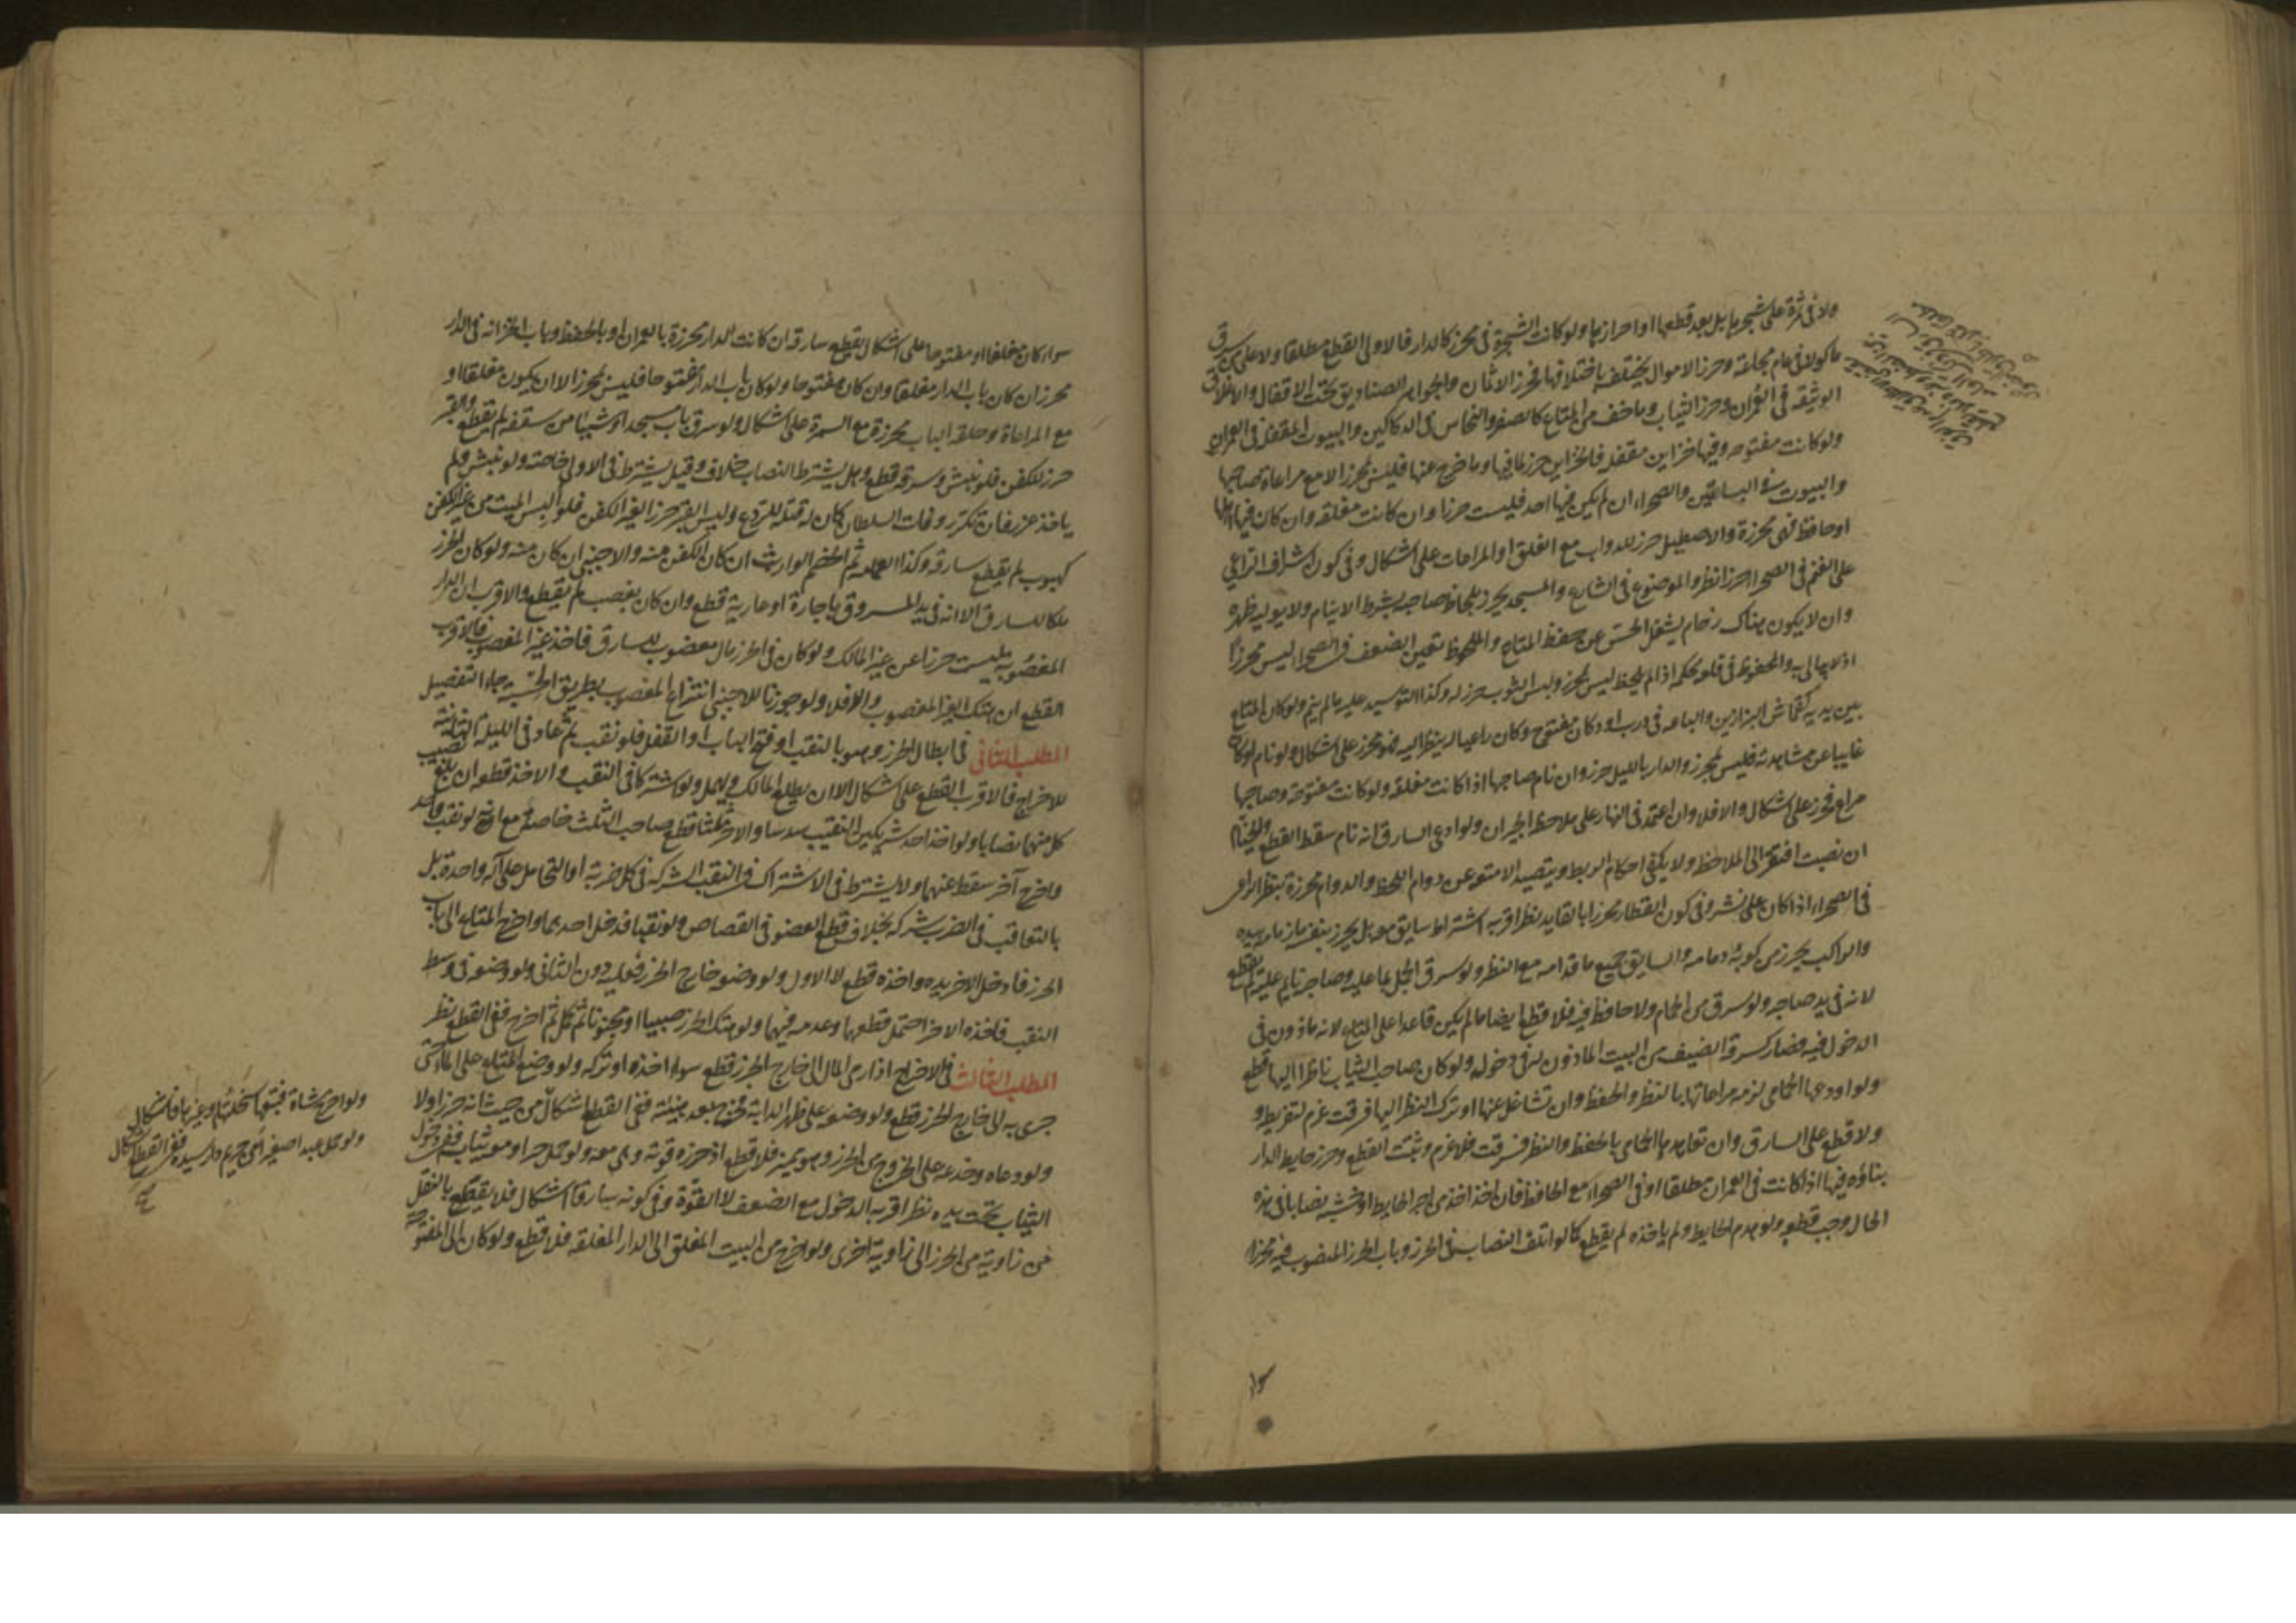 ولا في ثمرة على شجرها بل بعد قطعها او احرازها ولو كانت الشجرة في محرز كالدار فالاولى القطع مطلقا ولا على من سرق
ماكولا في عام مجاعة وحرز الاموال يختلف باختلافها فحرز الاثمان والجواهر الصناديق تحت الاقفال والاغلاق
الوثيقة في العمران وحرز الثياب وما خف من المتاع كالصفر والنحاس في الدكاكين والبيوت المقفلة في العمران
ولو كانت مفتوحة وفيها خزاين مقفلة فالخزاين حرز لما فيها وما خرج عنها فليس بمحرز الا مع مراعاة صاحبها
والبيوت في البساتين والصحراء ان لم يكن فيها احد فليست حرزا وان كانت مغلقة وان كان فيها اهلها
او حافظ فهي محرزة والاصطبل حرز للدواب مع الغلق او المراعات على اشكال وفي كون اشراف الراعي
على الغنم في الصحراء حرزا نظر والموضوع في الشارع والمسجد محرز بلحاظ صاحبه بشرط الا ينام ولا يوليه ظهره
وان لا يكون هناك زحام يشغل الحس عن حفظ المتاع والملحوظ بعين الضعف في الصحراء ليس محرزا
اذ لا يبالى به والمحفوظ في قلعة محكمة اذا لم يلحظ ليس بمحرز ولبس الثوب حرز له وكذا التوسد عليه ما لم ينم ولو كان المتاع
بين يديه كقماش البزازين والباعة في درب او دكان مفتوح وكان راعيا له ينظر اليه فهو محرز على اشكال ولو نام او كان
غايبا عن مشاهدته فليس بمحرز والدار بالليل حرز وان نام صاحبها اذا كانت مغلقة ولو كانت مفتوحة وصاحبها
مراع فمحرز على اشكال والا فلا وان اعتمد في النهار على ملاحظة الجيران ولو ادعى السارق انه نام سقط القطع والخيام
ان نصبت افتقر الى الملاحظ ولا يكفي احكام الربط وتنضيد الامتعة عن دوام اللحظ والدواب محرزة بنظر الراعي
في الصحراء اذا كان على نشز وفي كون القطار محرزا بالقايد نظر اقربه اشتراط سايق معه بل يحرز بنفسه ما زمامه بيده
والراكب يحرز مركوبه وما امامه والسايق جميع ما قدامه مع النظر ولو سرق الجمل بما عليه وصاحبه نايم عليه لم يقطع
لانه في يد صاحبه ولو سرق من الحمام ولا حافظ فيه فلا قطع ايضا ما لم يكن قاعدا على المتاع لانه ماذون في
الدخول فيه فصار كسرقة الضيف من البيت الماذون له في دخوله ولو كان صاحب الثياب ناظرا اليها قطع
ولو اودعها الحمامي لزمه مراعاتها بالنظر والحفظ وان تشاغل عنها او ترك النظر اليها فسرقت غرم لتفريطه و
ولا قطع على السارق وان تعاهدها الحمامي بالحفظ والنظر فسرقت فلا غرم ويثبت القطع وحرز حايط الدار
بناؤه فيها اذا كانت في العمران مطلقا او في الصحراء مع الحافظ فان اخذ من اجر الحايط او خشبه نصابا في هذه
الحال وجب قطعه ولو هدم الحايط ولم ياخذه لم يقطع كما لو اتلف النصاب في الحرز وباب الحرز المنصوب فيه محرز
سواء كان مغلقا او مفتوحا على اشكال يقطع سارقه ان كانت الدار محرزة بالعمران او بالحفظ وباب الخزانة في الدار
محرز ان كان باب الدار مغلقا وان كان مفتوحا ولو كان باب الدار مفتوحا فليس بمحرز الا ان يكون مغلقا او
مع المراعاة وحلقة الباب محرزة مع السمرة على اشكال ولو سرق باب مسجد او شيئا من سقفه لم يقطع والقبر
حرز للكفن فلو نبش وسرقه قطع وهل يشترط النصاب خلاف وقيل يشترط في الاولى خاصة ولو نبش ولم
ياخذ عزر فان تكرر وفات السلطان كان له قتله للردع وليس القبر حرزا لغير الكفن فلو البس الميت من غير الكفن
كهبوب لم يقطع سارقه وكذا العمامة ثم الخصم الوارث ان كان الكفن منه والاجنبي ان كان منه ولو كان الحرز
ملكا للسارق الا انه في يد المسروق باجارة او عارية قطع وان كان بغصب لم يقطع والاقرب ان الدار
المغصوبة ليست حرزا عن غير المالك ولو كان في الحرز مال مغصوب للسارق فاخذ غير المغصوب فالاقرب
القطع ان هتك لغير المغصوب والا فلا ولو جوزنا للاجنبي انتزاع المغصوب بطريق الحسبة جاء التفصيل
المطلب الثاني في ابطال الحرز وهو بالنقب او فتح الباب او القفل فلو نقب ثم عاد في الليلة الثانية
للاخراج فالاقرب القطع على اشكال الا ان يطلع المالك ويهمل ولو اشتركا في النقب والاخذ قطعا ان بلغ نصيب
كل منهما نصابا ولو اخذ احد شريكي النقب سدسا والاخر ثلثا قطع صاحب الثلث خاصة ولو نقب واحد
واخرج آخر سقط عنهما ولا يشترط في الاشتراك في النقب الشركة في كل ضربة او التحامل على آلة واحدة بل
بالتعاقب في الضرب شركة بخلاف قطع العضو في القصاص ولو نقبا فدخل احدهما واخرج المتاع الى باب
الحرز فادخل الاخر يده واخذه قطع لا الاول ولو وضعه خارج الحرز فعليه دون الثاني ولو وضعه في وسط
النقب فاخذه الاخر احتمل قطعهما وعدمه فيهما ولو هتك الحرز صبيا او مجنونا ثم كمل ثم اخرج ففي القطع نظر
المطلب الثالث في الاخراج اذا رمى المال الى خارج الحرز قطع سواء اخذه او تركه ولو وضع المتاع على الماء حتى
جرى به الى خارج الحرز قطع ولو وضعه على ظهر الدابة فخرج بعد هنيئة ففي القطع اشكال من حيث انه حرز او لا
ولو دعاه وخدعه على الخروج من الحرز وهو مميز فلا قطع اذ حرزه قوته وهي معه ولو حمل حرا ومعه ثياب ففي دخول
الثياب تحت يده نظر اقربه الدخول مع الضعف لا القوة وفي كونه سارقا اشكال فلا يقطع بالنقل
من زاوية من الحرز الى زاوية اخرى ولو اخرج من البيت المغلق الى الدار المغلقة فلا قطع ولو كان الى المفتوحة
ولو اخرج شاة فتبعها سخلتها او غيرها فاشكال
ولو حمل عبدا صغيرا من حريم دار سيده ففي القطع اشكال